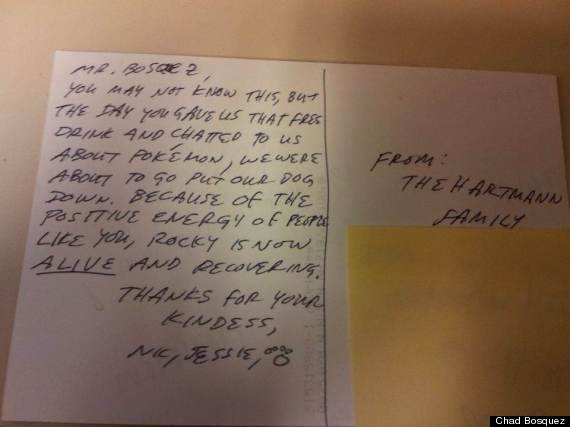 MR. BOSQEZ,
YOU MAY NOT KNOW THIS, BUT
THE DAY YOU GAVE US THAT FREE
DRINK AND CHATTED TO US
ABOUT POKÉMON, WE WERE
ABOUT TO GO PUT OUR DOG
DOWN. BECAUSE OF THE
POSITIVE ENERGY OF PEOPLE
LIKE YOU, ROCKY IS NOW
ALIVE AND RECOVERING.
THANKS FOR YOUR
KINDESS,
JESSIE,
FROM:
THE HARTMANN
FAMILY
Chad Bosquez